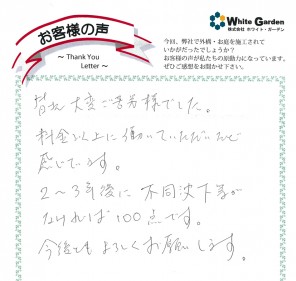 お客様の声
～ Thank You
Letter ～
White Garden
株式会社 ホワイト・ガーデン
今回、弊社で外構・お庭を施工されて
いかがだったでしょうか？
お客様の声が私たちの原動力になっています。
ぜひご感想をお聞かせ下さい。
皆え 大変ご苦労様でした。
料金以上に働いていただいたと
感じています。
2～3年後に不同沈下等が
なければ100点です。
今後ともよろしくお願いします。